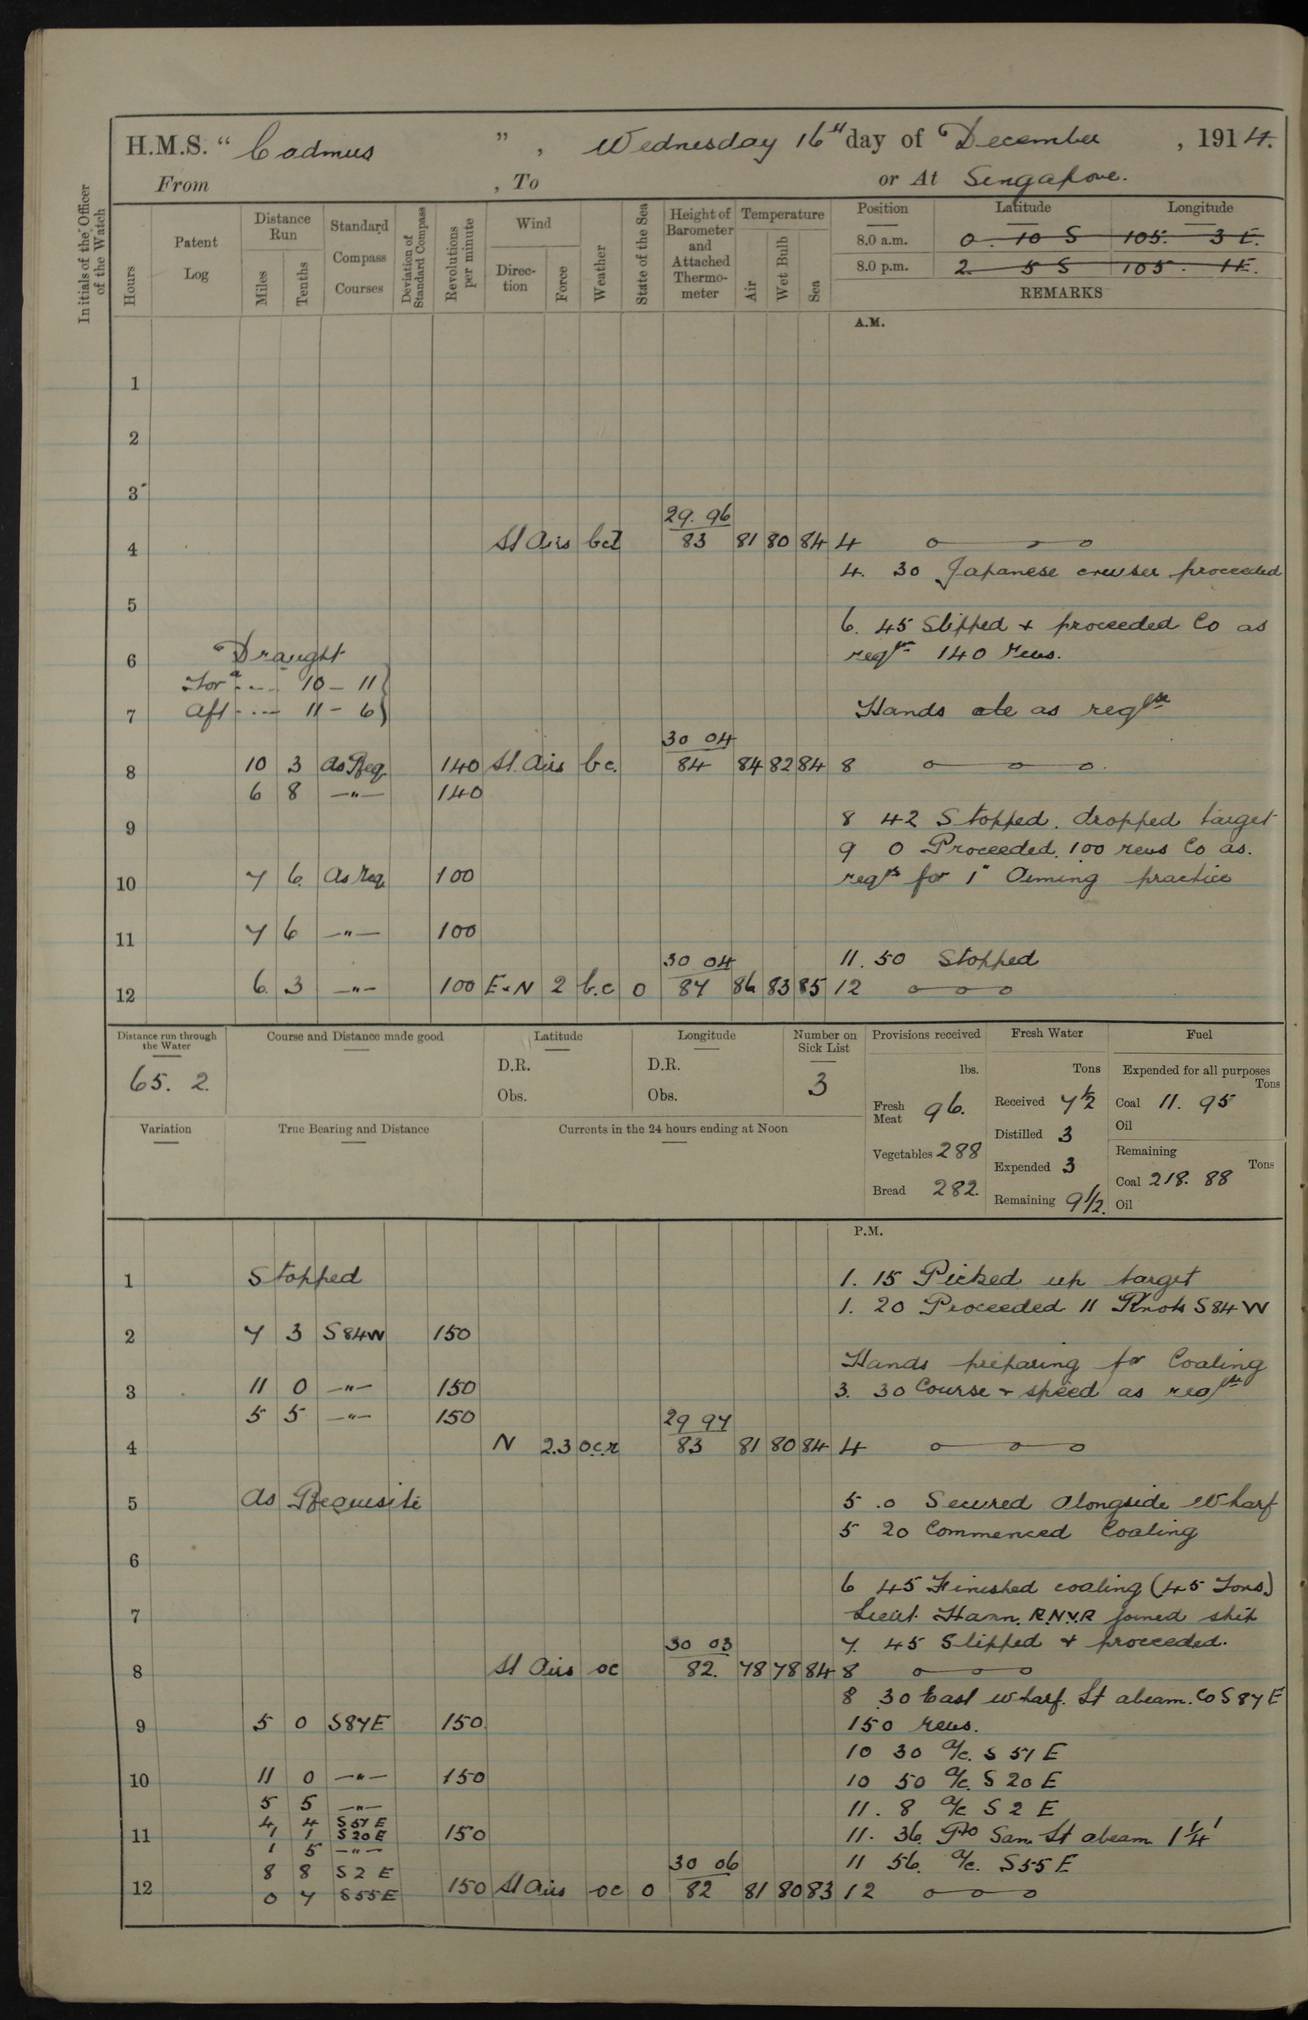 H.M.S. “ Cadmus ” , Wednesday 16th day of December , 1914.
From , To or At Singapore.
Initials of the Officer of the Watch
Hours
Patent Log
Distance Run
Miles
Tenths
Standard Compass Courses
Deviation of Standard Compass
Revolutions per minute
Wind
Direction
Force
Weather
State of the Sea
Height of Barometer and Attached Thermometer
Temperature
Air
Wet Bulb
Sea
Position Latitude Longitude
8.0 a.m. 0. 10 S 105. 3 E.
8.0 p.m. 2. 5 S 105. 1 E.
REMARKS
A.M.
1
2
3
29. 96
4 Lt Airs bcl 83 81 80 84 4
4. 30 Japanese cruiser proceeded
5
6. 45 Slipped + proceeded Co as
6 Draught reqte 140 revs.
Ford .... 10 - 11
7 Aft .... 11 - 6 Hands cle as reqse
30 04
8 10 3 as Req 140 Lt Airs b.c. 84 84 82 84 8
6 8 —"— 140
9 8 42 Stopped. dropped target
9 0 Proceeded. 100 revs Co as.
10 7 6 as req 100 reqte for 1" Aiming practice
11 7 6 —"— 100
30 04 11. 50 Stopped
12 6 3 —"— 100 E+N 2 b.c 0 87 86 83 85 12
Distance run through the Water
65. 2
Course and Distance made good
Latitude
D.R.
Obs.
Longitude
D.R.
Obs.
Number on Sick List
3
Provisions received
lbs.
Fresh Meat 96.
Vegetables 288
Bread 282.
Fresh Water
Tons
Received 7½
Distilled 3
Expended 3
Remaining 9½.
Fuel
Expended for all purposes
Tons
Coal 11. 95
Oil
Remaining
Tons
Coal 218. 88
Oil
Variation
True Bearing and Distance
Currents in the 24 hours ending at Noon
P.M.
1 Stopped 1. 15 Picked up target
1. 20 Proceeded 11 Knots S84W
2 7 3 S84W 150
Hands preparing for Coaling
3 11 0 —"— 150 3. 30 Course + speed as reqte
5 5 —"— 150 29 97
4 N 2.3 o.c.r 83 81 80 84 4
5 As Requisite 5 .0 Secured alongside Wharf
5 20 Commenced Coaling
6
6 45 Finished coaling (45 Tons)
7 Lieut. Hann. R.N.V.R joined ship
30 03 7. 45 Slipped + proceeded.
8 Lt Airs oc 82. 78 78 84 8
8 30 East wharf. Lt abeam. Co S87E
9 5 0 S87E 150 150 revs.
10 30 a/c. S 51 E
10 11 0 —"— 150 10 50 a/c. S 20 E
5 5 —"— 11. 8 a/c S 2 E
4 4 S 51 E
11 1 1 S 20 E 150 11. 36. Pto Sam. Lt abeam 1¼'
1 5 —"—
30 06 11 56. a/c. S55E
8 8 S 2 E
12 0 7 S55E 150 Lt Airs oc 0 82 81 80 83 12